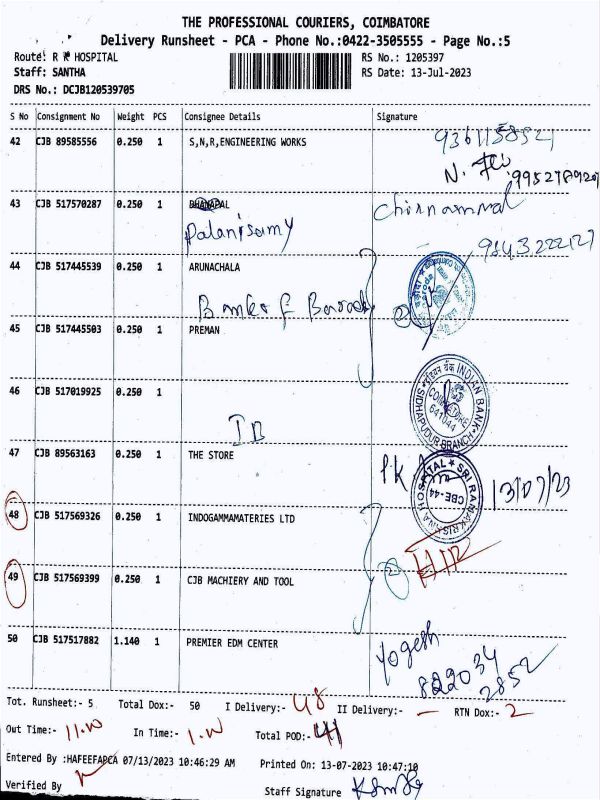 THE PROFESSIONAL COURIERS, COIMBATORE
Delivery Runsheet - PCA - Phone No.:0422-3505555 - Page No.:5
Route: R K HOSPITAL
RS No.: 1205397
Staff: SANTHA
RS Date: 13-Jul-2023
DRS No.: DCJB120539705
S No Consignment No Weight PCS Consignee Details Signature
42 CJB 89585556 0.250 1 S,N,R,ENGINEERING WORKS
N.
43 CJB 517570287 0.250 1 DHANAPAL Chinnammal
Palanisamy
9843222127
44 CJB 517445539 0.250 1 ARUNACHALA
Bank of Baroda 2
45 CJB 517445503 0.250 1 PREMAN
46 CJB 517019925 0.250 1
IB
INDIAN BANK
COIMBATORE
641044
SIDHAPUDUR BRANCH
47 CJB 89563163 0.250 1 THE STORE
P.K 13/07/23
SRI RAMAKRISHNA HOSPITAL
CBE-44
48 CJB 517569326 0.250 1 INDOGAMMAMATERIES LTD
49 CJB 517569399 0.250 1 CJB MACHIERY AND TOOL 2
50 CJB 517517882 1.140 1 PREMIER EDM CENTER Yogesh
822034
2852
Tot. Runsheet:- 5 Total Dox:- 50 I Delivery:- 48 II Delivery:- - RTN Dox:- 2
Out Time:- In Time:- Total POD:- 41
Entered By :HAFEEFAPCA 07/13/2023 10:46:29 AM Printed On: 13-07-2023 10:47:10
Verified By
Staff Signature